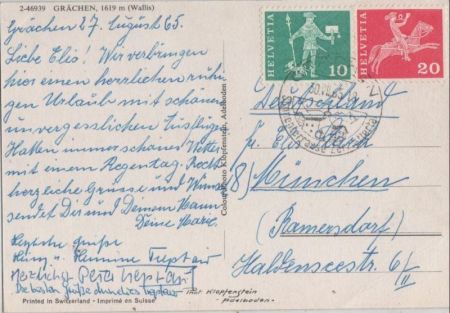 2-46939 GRÄCHEN, 1619 m (Wallis)
Grächen 27. August 65.
Liebe Elis! Wir verbringen
hier einen herrlichen ruhi-
gen Urlaub mit schönen
unvergesslichen Ausflügen
Hatten immer schönes Wetter
mit einem Regentag. Recht
herzliche Grüsse und
sendet Dir und Deinem Mann
Deine Marie.
Herzliche Grüße
Hermine Treptau
Herzlich Peter Treptau
Die besten Grüße
Printed in Switzerland - Imprimé en Suisse
Colorphoto Klopfenstein, Adelboden
HELVETIA
10
HELVETIA
20
Deutschland
Fr.
8) München
(Ramersdorf)
Haldenseestr. 6/III
Klopfenstein
Adelboden.